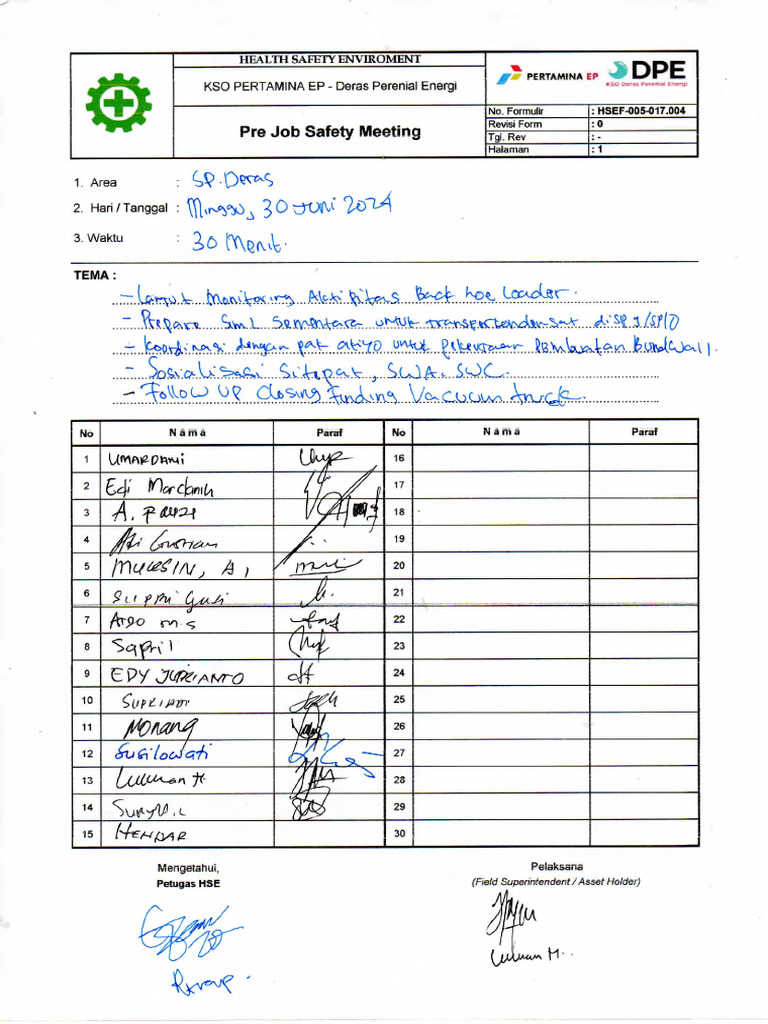 HEALTH SAFETY ENVIROMENT
KSO PERTAMINA EP - Deras Perenial Energi
Pre Job Safety Meeting
PERTAMINA EP
DPE
KSO Deras Perenial Energi
No. Formulir : HSEF-005-017.004
Revisi Form : 0
Tgl. Rev : -
Halaman : 1
1. Area : SP. Deras
2. Hari / Tanggal : Minggu, 30 Juni 2024
3. Waktu : 30 Menit.
TEMA :
- Lanjut Monitoring Aktifitas Back hoe Loader.
- Prepare Simi Sementara untuk transper kondensat di SP J/SPO
- Koordinasi dengan pak atiyo untuk pekerjaan Pembuatan Bundwall.
- Sosialisasi Sitepat, SWA, SWC.
- Follow up Closing Finding Vacuum truck.
No Nama Paraf No Nama Paraf
1 UMARDANI 16
2 Edi Mardanih 17
3 A. 18
4 19
5 MUKSIN, A, 20
6 21
7 ALDO M.S 22
8 Sapril 23
9 EDY SUPRIANTO 24
10 SUPRIADI 25
11 MONANG 26
12 Susilowati 27
13 Lukman H 28
14 29
15 HENDAR 30
Mengetahui,
Petugas HSE
Pelaksana
(Field Superintendent / Asset Holder)
Lukman H.